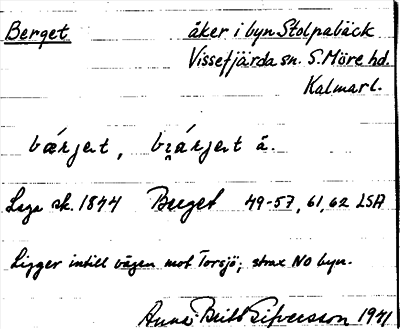 Berget åker i byn Stolpabäck
Vissefjärda sn. S. Möre hd.
Kalmar l.
bærjet, å.
Laga sk. 1844 Berget 49-57, 61, 62 LSA
Ligger intill vägen mot Torsjö; strax NO byn.
Anna-Britt Sifversson 1941